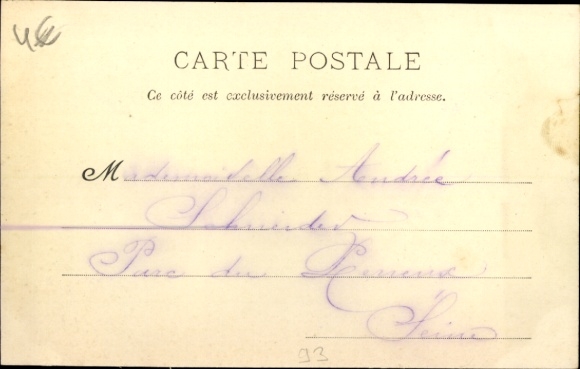 CARTE POSTALE
Ce côté est exclusivement réservé à l'adresse.
Mademoiselle Andrée
Schneider
Parc du
Seine
93